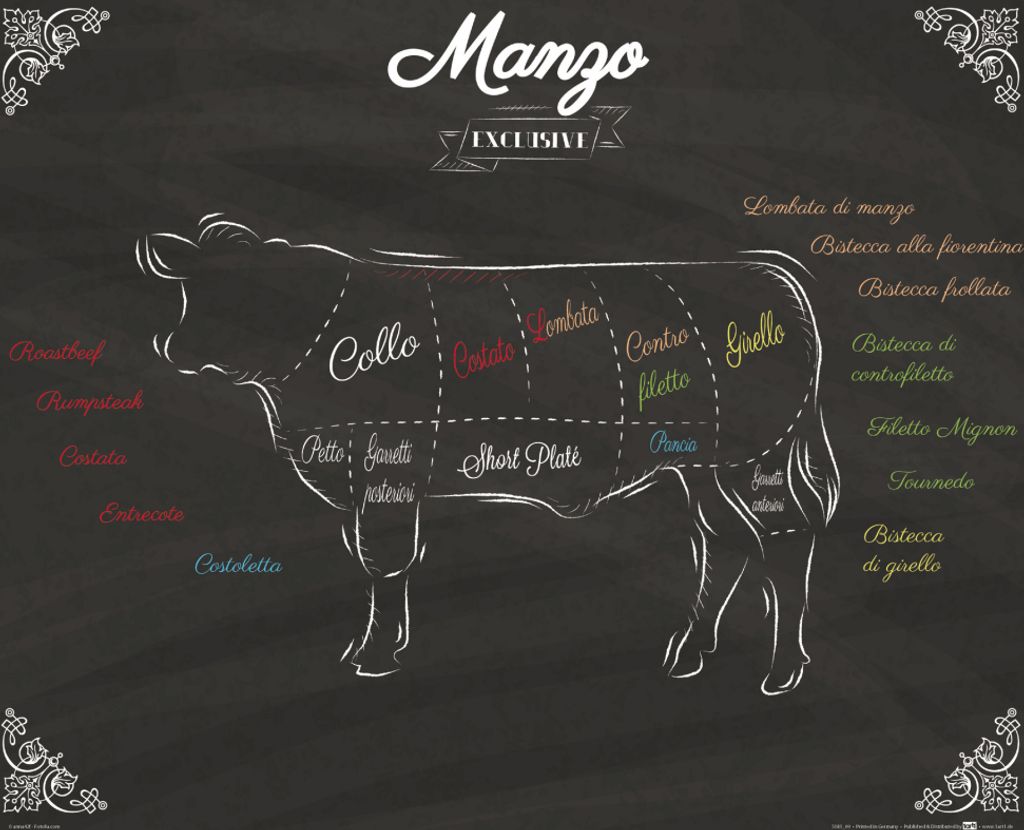 Manzo
EXCLUSIVE
Lombata di manzo
Bistecca alla fiorentina
Bistecca frollata
Collo
Costato
Lombata
Contro
filetto
Girello
Roastbeef
Rumpsteak
Costata
Entrecote
Costoletta
Bistecca di
controfiletto
Filetto Mignon
Tournedo
Bistecca
di girello
Petto
Garretti
posteriori
Short Platé
Pancia
Garretti
anteriori